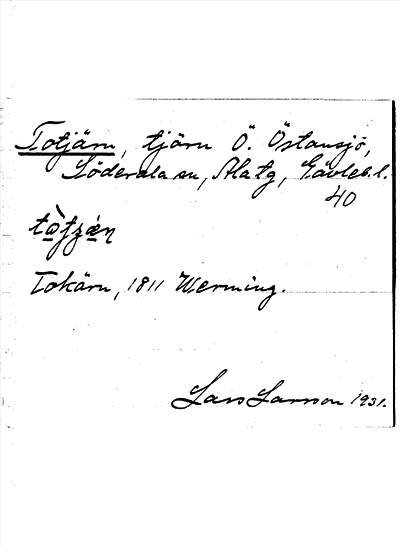 Totjärn, tjärn Ö. Östansjö,
Söderala sn, Ala tg, Gävleb. l.
40
tɷ̀tʒæ̀n
Tokärn, 1811 Werming.
Lars Larsson 1931.